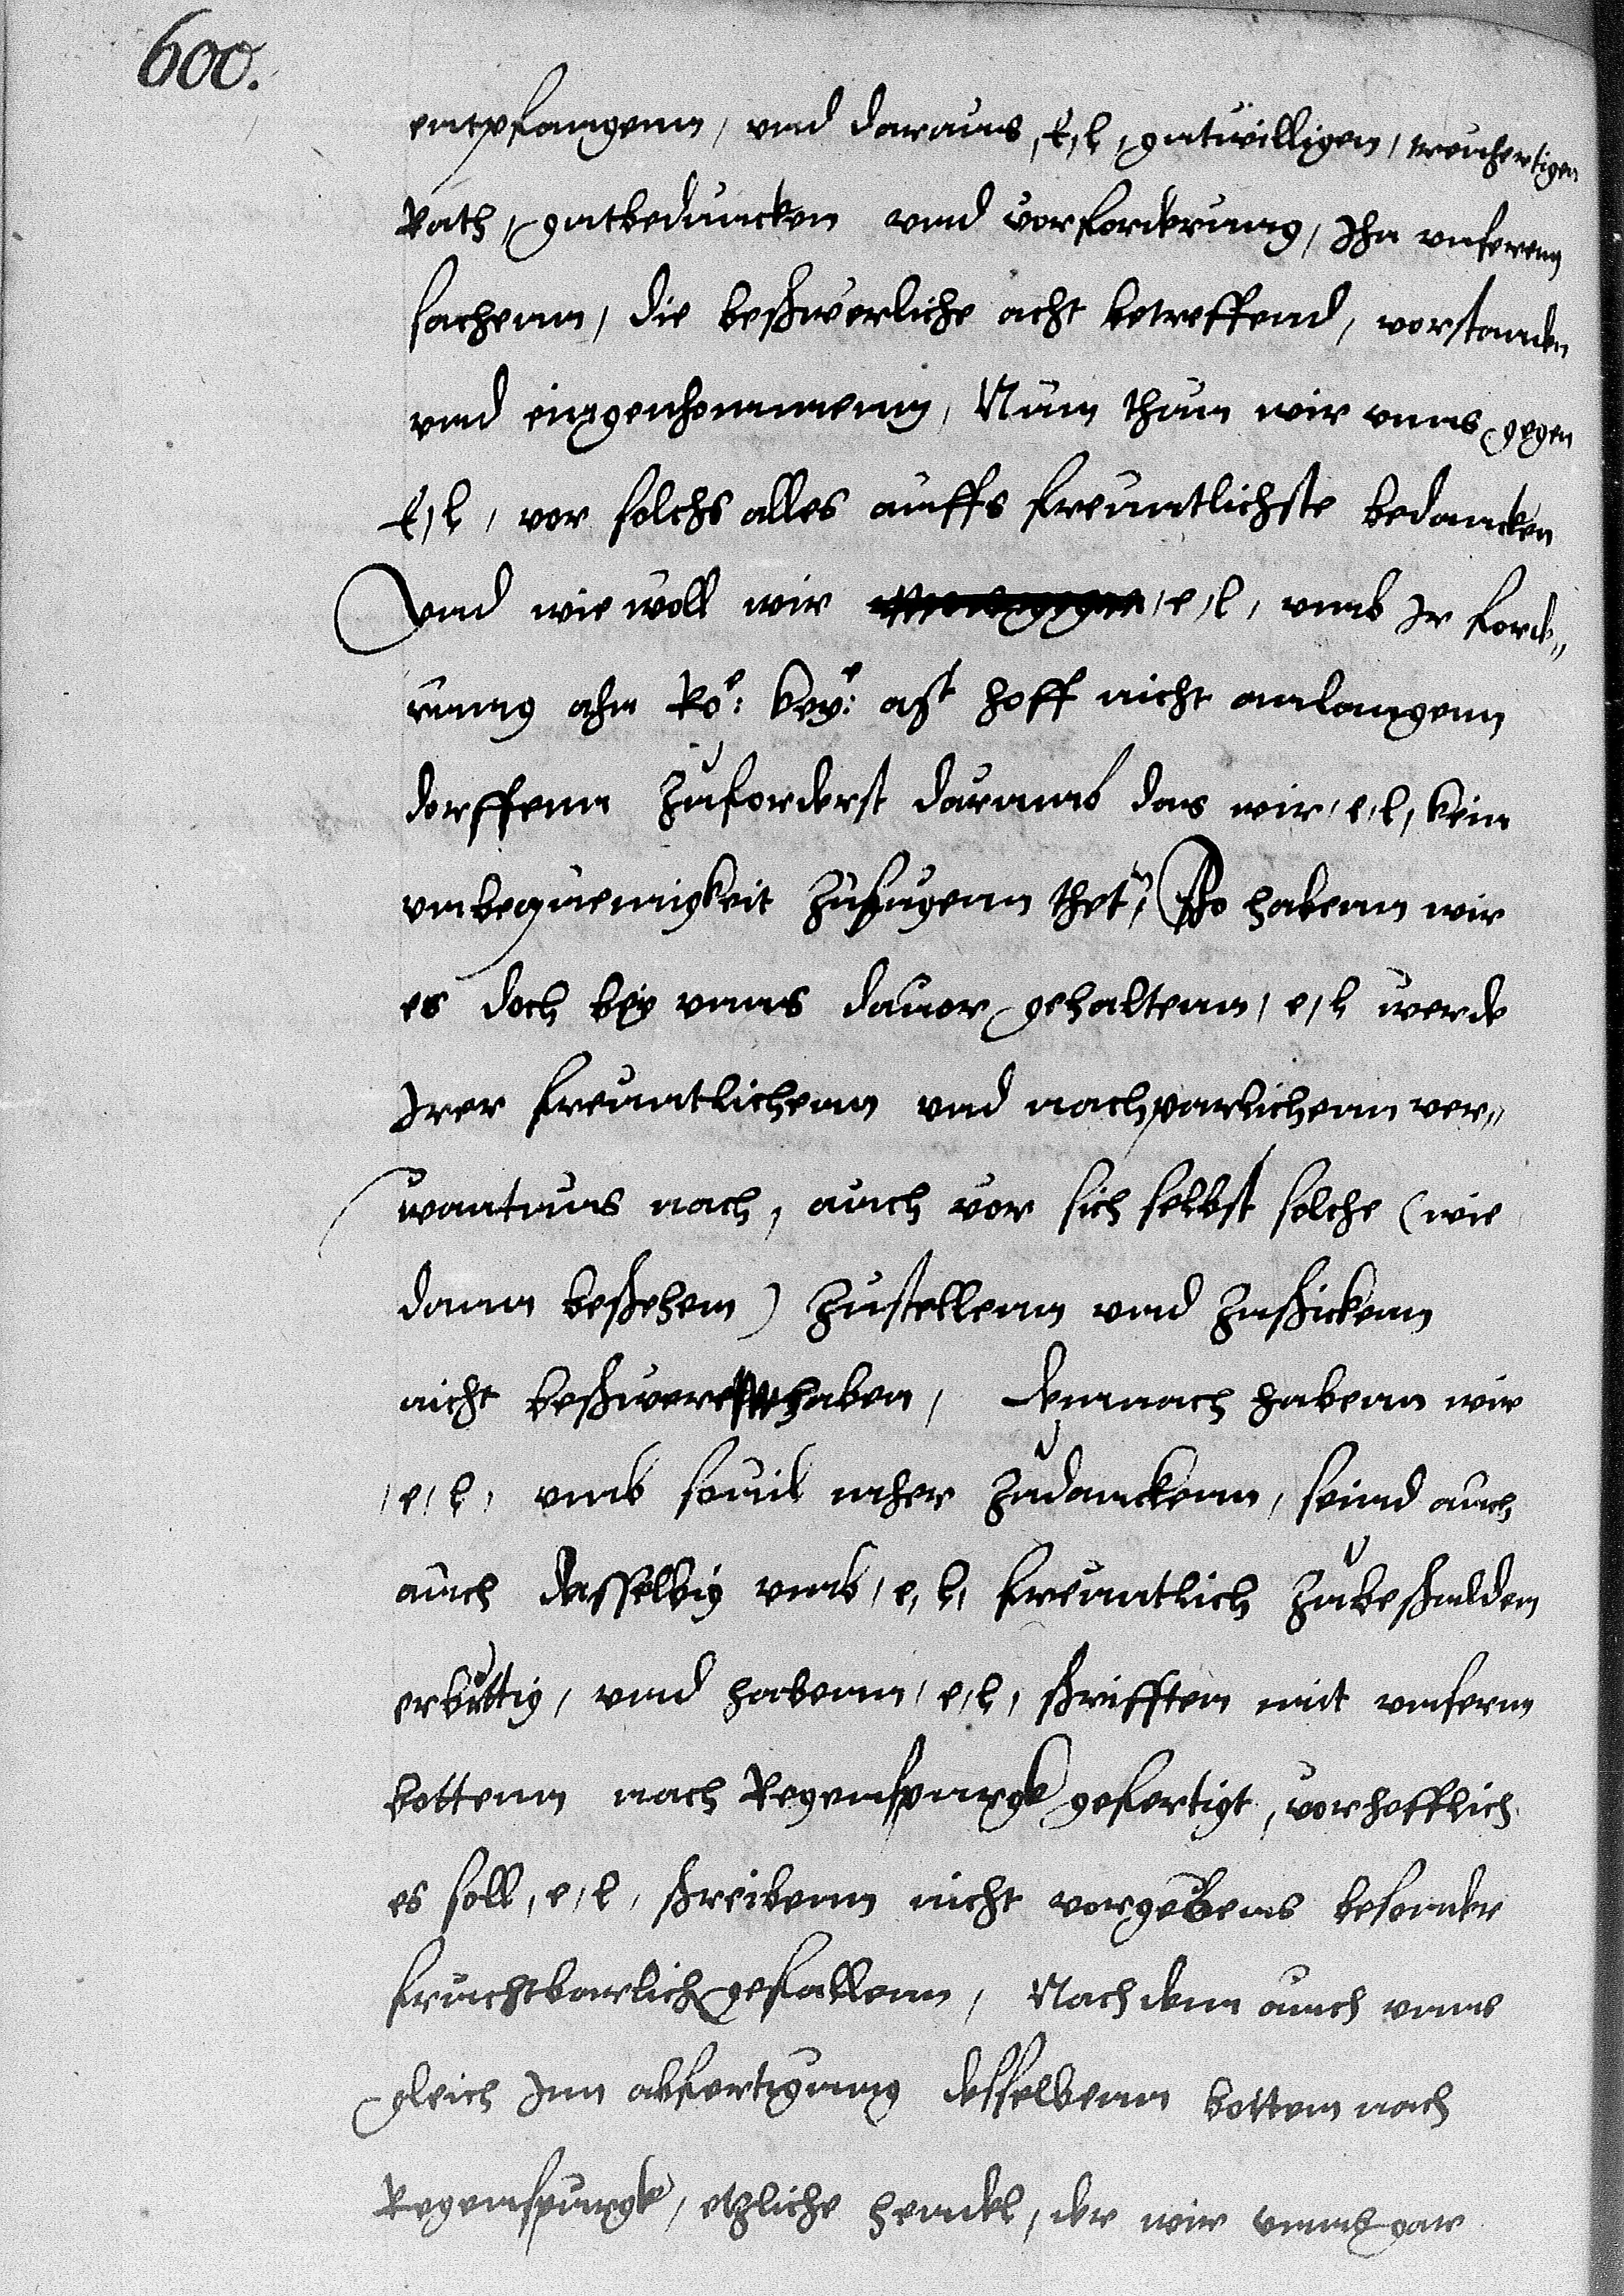 600.
entpfangenn, vnd darauns, E, l, gutwilligen, treuhertigen
Rath, gutbeduncken vnd vorforderung, Jhn vnserenn
sachenn, die beschwerliche acht betreffend, vorstanden
vnd eingenhommenn, Nun thun wir vnns gegen
E, l, vor solchs alles auffs freuntlichste bedancken
Vnd wie woll wir e, l, vmb Jr ford„
rung ahn Rö: key: hoff nicht anlangenn
dorffenn zuforderst darumb das wir, e, l, kein
vnbequemigkeit zufugenn thetn, So habenn wir
es doch bey vnns dauor gehaltenn, e, l werde
Jrer freuntlichenn vnd nachparlichenn ver„
wantnus nach, auch vor sich selbst solche (wie
dann beschehenn) zustellenn vnd zuschickenn
nicht beschwert haben, Demnach habenn wir
, e, l, vmb souil meher zudanckenn, seind auch
auch dasselbig vmb, e, l, freuntlich zubeschulden
erbuttig, vnd habenn, e, l, schrifften mit vnserm
bottenn nach Regenspurgk gefertigt, vorhofflich
es soll, e, l, schreibenn nicht vorgebens besonder
fruchtbarlich gefallenn, Nach dem auch vnns
gleich Jnn abfertigung desselbenn bottenn nach
Regenspurgk, etzliche hendel, der wir vnns gar